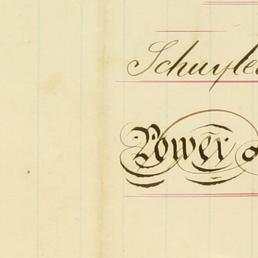 Schuyle
Power o